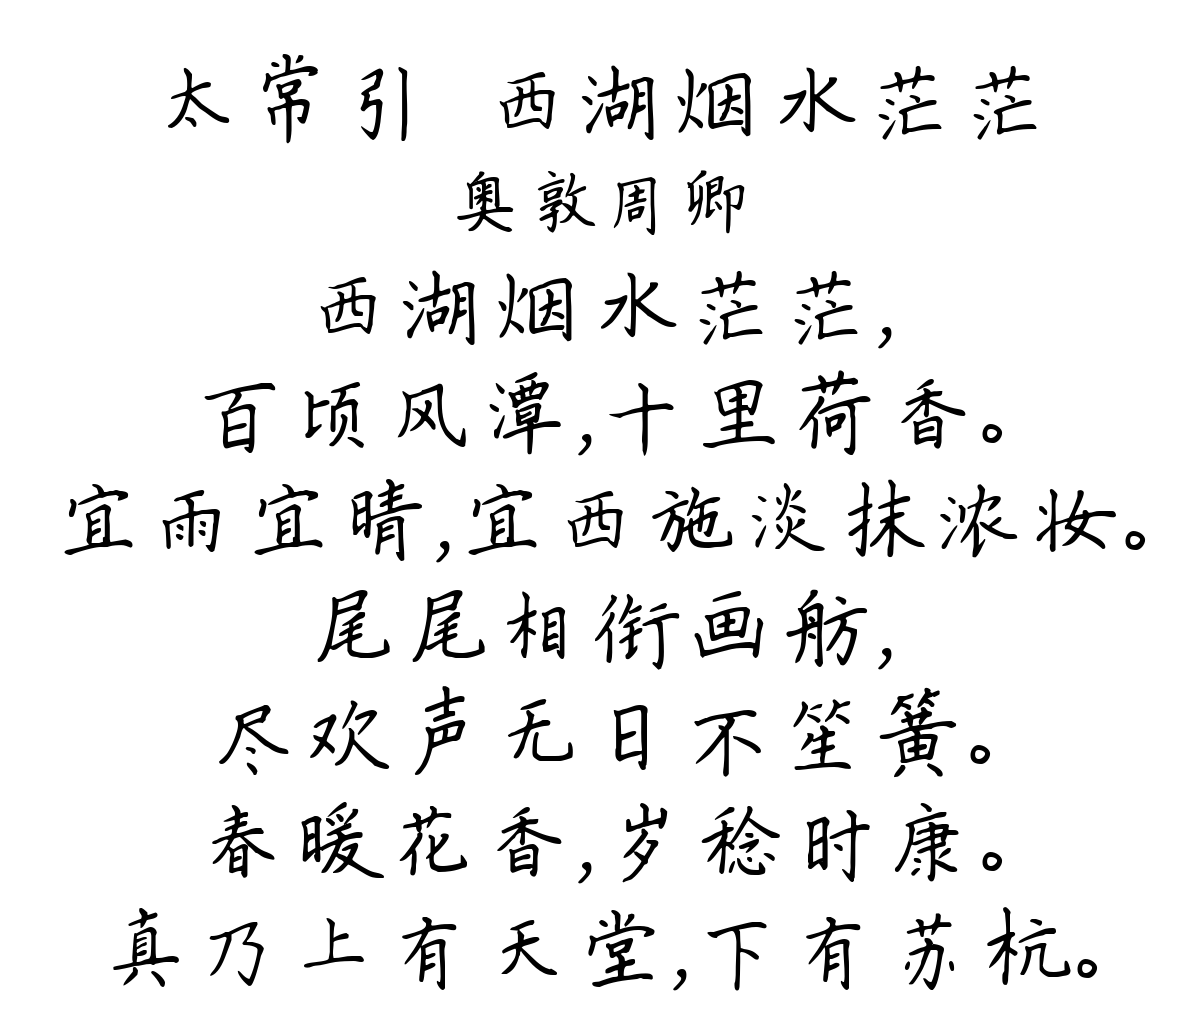 太常引 西湖烟水茫茫
奥敦周卿
西湖烟水茫茫,
百顷风潭,十里荷香。
宜雨宜晴,宜西施淡抹浓妆。
尾尾相衔画舫,
尽欢声无日不笙簧。
春暖花香,岁稔时康。
真乃上有天堂,下有苏杭。